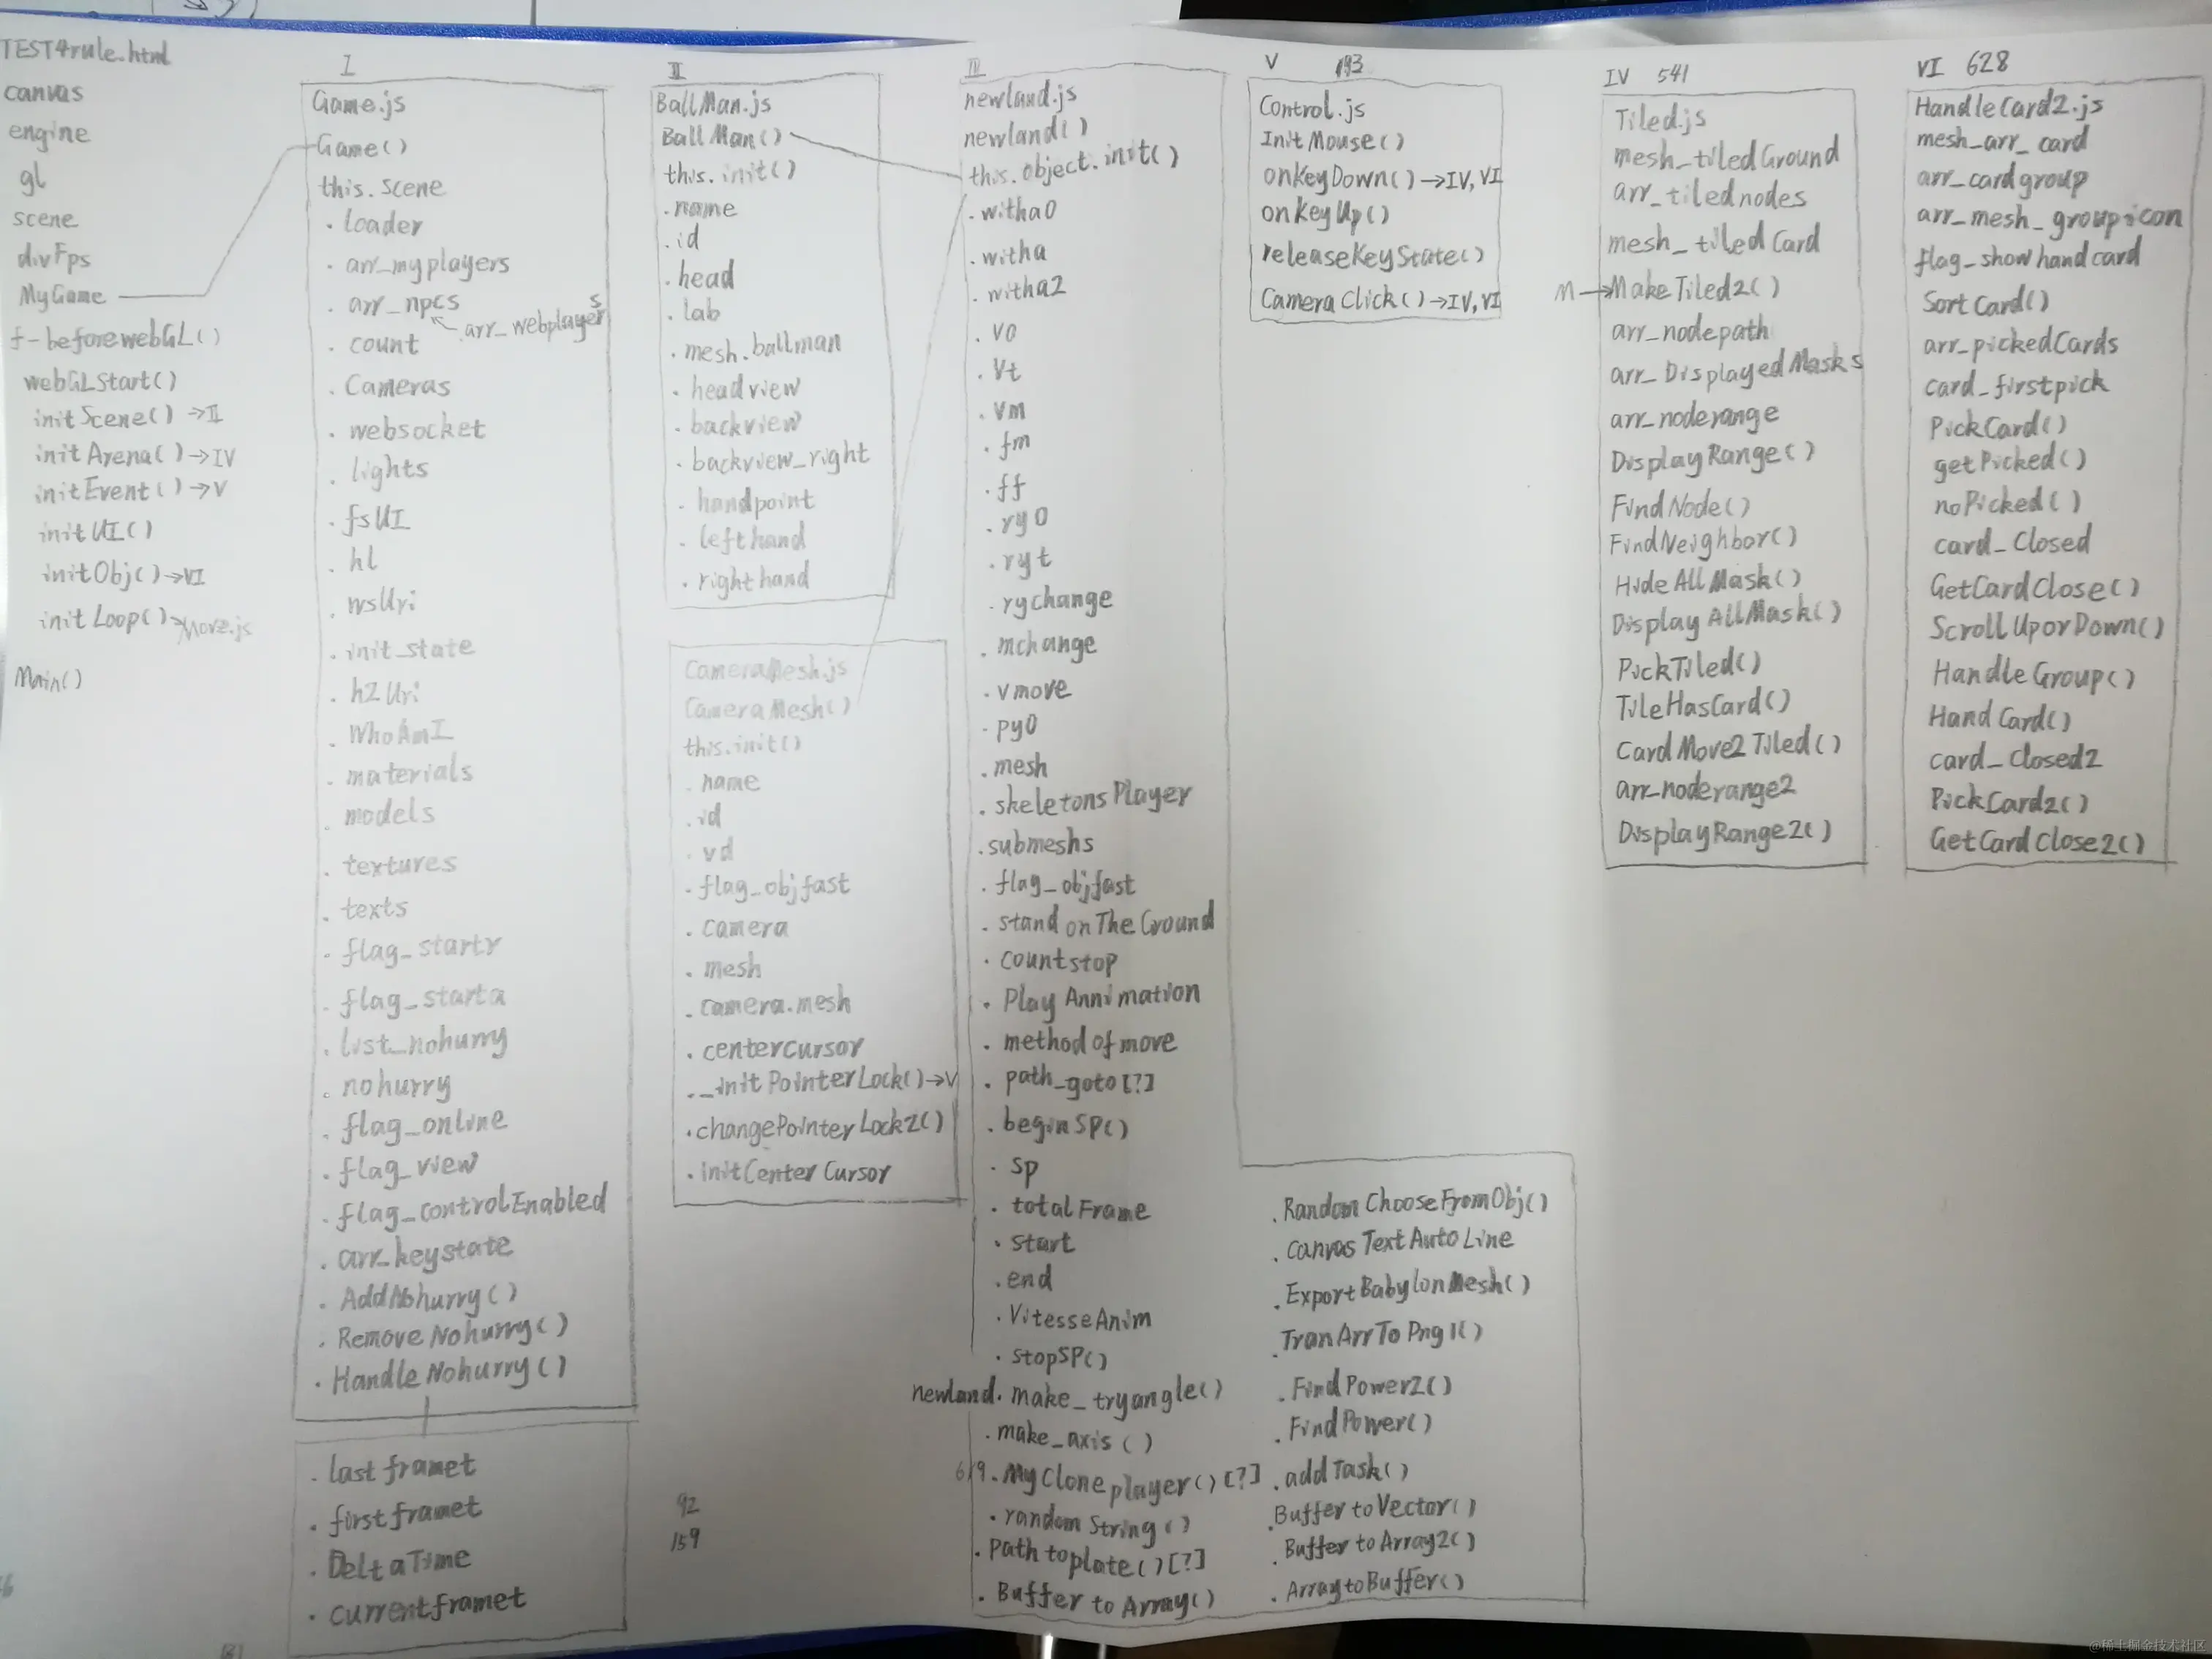 TEST4rule.html
canvas
engine
gl
scene
divFps
MyGame
f-beforewebGL()
webGLStart()
initScene()→II
initArena()→IV
initEvent()→V
initUI()
initObj()→VI
initLoop()→Move.js
Main()
I
Game.js
Game()
this.scene
.loader
.arr_myplayers
.arr_npcs
arr_webplayers
.count
.Cameras
.websocket
.lights
.fsUI
.hl
.wsUri
.init_state
.h2Uri
.WhoAmI
.materials
.models
.textures
.texts
.flag_startr
.flag_starta
.list_nohurry
.nohurry
.flag_online
.flag_view
.flag_controlEnabled
.arr_keystate
.AddNohurry()
.RemoveNohurry()
.HandleNohurry()
.lastframet
.firstframet
.DeltaTime
.currentframet
II
BallMan.js
BallMan()
this.init()
.name
.id
.head
.lab
.mesh.ballman
.headview
.backview
.backview_right
.handpoint
.lefthand
.righthand
CameraMesh.js
CameraMesh()
this.init()
.name
.id
.vd
.flag_objfast
.camera
.mesh
.camera.mesh
.centercursor
._initPointerLock()→V
.changePointerLock2()
.initCenterCursor
92
159
newland.js
newland()
this.object.init()
.witha0
.witha
.witha2
.v0
.vt
.vm
.fm
.ff
.ry0
.ryt
.rychange
.mchange
.vmove
.py0
.mesh
.skeletonsPlayer
.submeshs
.flag_objfast
.standonTheGround
.countstop
.PlayAnnimation
.methodofmove
.path_goto[?]
.beginSP()
.sp
.totalFrame
.start
.end
.VitesseAnim
.stopSP()
newland.make_tryangle()
.make_axis()
619.MyCloneplayer()[?]
.randomString()
.Pathtoplate()[?]
.BuffertoArray()
.RandomChooseFromObj()
.CanvasTextAutoLine
.ExportBabylonMesh()
.TranArrToPng1()
.FindPower2()
.FindPower()
.addTask()
.BuffertoVector()
.BuffertoArray2()
.ArraytoBuffer()
V 193
Control.js
InitMouse()
onKeyDown()→IV,VI
onKeyUp()
releaseKeyState()
CameraClick()→IV,VI
IV 541
Tiled.js
mesh_tiledGround
arr_tilednodes
mesh_tiledCard
M→MakeTiled2()
arr_nodepath
arr_DisplayedMasks
arr_noderange
DisplayRange()
FindNode()
FindNeighbor()
HideAllMask()
DisplayAllMask()
PickTiled()
TileHasCard()
CardMove2Tiled()
arr_noderange2
DisplayRange2()
VI 628
HandleCard2.js
mesh_arr_card
arr_cardgroup
arr_mesh_groupicon
flag_showhandcard
SortCard()
arr_pickedCards
card_firstpick
PickCard()
getPicked()
noPicked()
card_Closed
GetCardClose()
ScrollUporDown()
HandleGroup()
HandCard()
card_Closed2
PickCard2()
GetCardClose2()
@稀土掘金技术社区